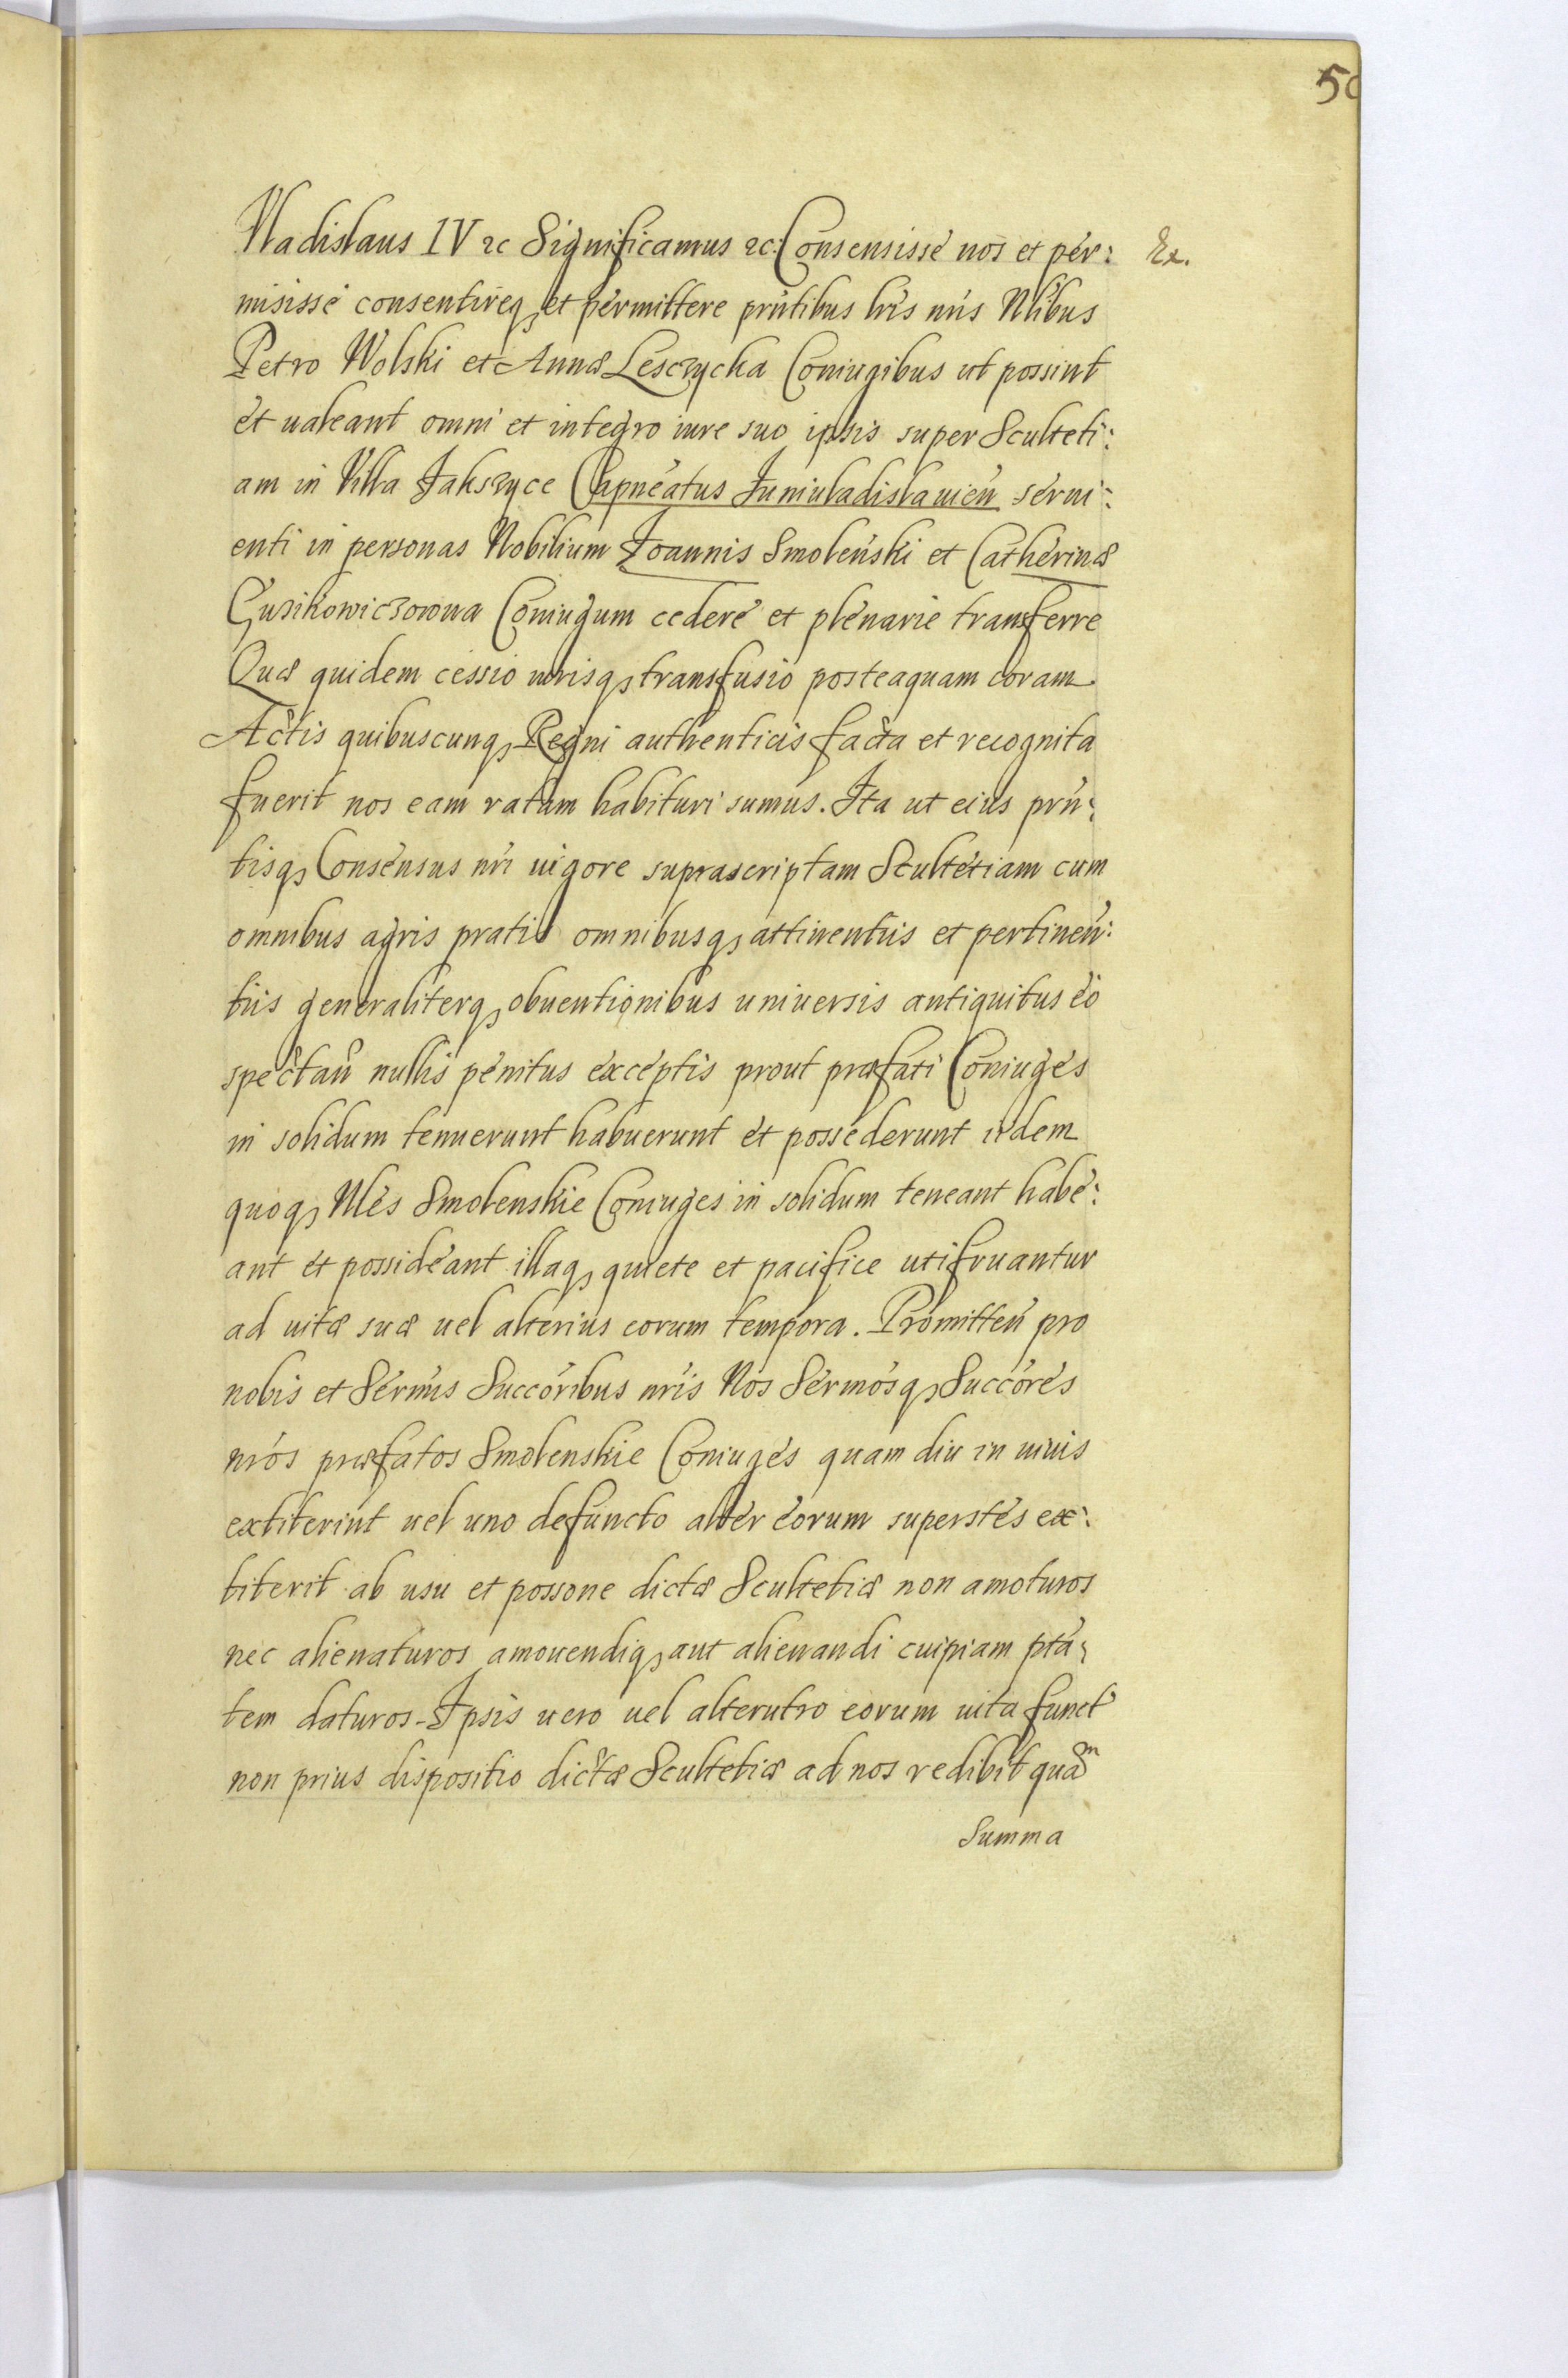 50
Vladislaus IV etc Significamus etc: Consensisse nos et per:
Ex.
misisse consentireq et permittere pñtibus lris nris Nlibus
Petro Wolski et Annæ Lesczycka Coniugibus ut possint
et ualeant omni et integro iure suo ipsis super Sculteti:
am in Villa Jakszyce Capneatus Juniuladislauien serui:
enti in personas Nobilium Joannis Smoleński et Catherinæ
Guzikowiczowna Coniugum cedere et plenarie transferre
Quæ quidem cessio iurisq transfusio posteaquam coram
Actis quibuscunq Regni authenticis facta et recognita
fuerit nos eam ratam habituri sumus. Ita ut eius prn:
tisq Consensus nri uigore suprascriptam Scultetiam cum
omnibus agris pratis omnibusq attinentiis et pertinen:
tiis generaliterq obuentionibus uniuersis antiquitus eo
spectan nullis penitus exceptis prout præfati Coniuges
in solidum tenuerunt habuerunt et possederunt iidem
quoq Nles Smolenskie Coniuges in solidum teneant habe:
ant et possideant illaq quiete et pacifice utifruantur
ad uitæ suæ uel alterius eorum tempora. Promitten pro
nobis et Sermis Succoribus nris Nos Sermosq Succores
nros præfatos Smolenskie Coniuges quam diu in uiuis
extiterint uel uno defuncto alter eorum superstes ex:
titerit ab usu et possone dictæ Scultetiæ non amoturos
nec alienaturos amouendiq aut alienandi cuipiam pta:
tem daturos - Ipsis uero uel alterutro eorum uita funct
non prius dispositio dictæ Scultetiæ ad nos redibit quam
Summa